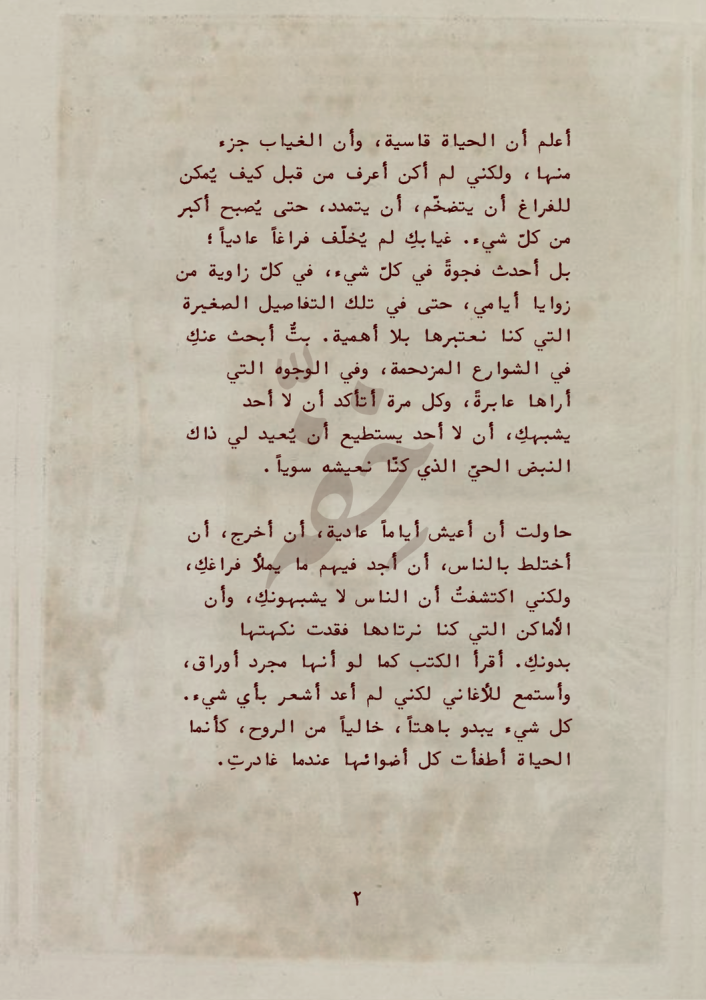 أعلم أن الحياة قاسية، وأن الغياب جزء
منها، ولكني لم أكن أعرف من قبل كيف يُمكن
للفراغ أن يتضخّم، أن يتمدد، حتى يُصبح أكبر
من كلّ شيء. غيابكِ لم يُخلّف فراغاً عادياً؛
بل أحدث فجوةً في كلّ شيء، في كلّ زاوية من
زوايا أيامي، حتى في تلك التفاصيل الصغيرة
التي كنا نعتبرها بلا أهمية. بتُّ أبحث عنكِ
في الشوارع المزدحمة، وفي الوجوه التي
أراها عابرةً، وكل مرة أتأكد أن لا أحد
يشبهكِ، أن لا أحد يستطيع أن يُعيد لي ذاك
النبض الحيّ الذي كنّا نعيشه سوياً.
حاولت أن أعيش أياماً عادية، أن أخرج، أن
أختلط بالناس، أن أجد فيهم ما يملأ فراغكِ،
ولكني اكتشفتُ أن الناس لا يشبهونكِ، وأن
الأماكن التي كنا نرتادها فقدت نكهتها
بدونكِ. أقرأ الكتب كما لو أنها مجرد أوراق،
وأستمع للأغاني لكني لم أعد أشعر بأي شيء.
كل شيء يبدو باهتاً، خالياً من الروح، كأنما
الحياة أطفأت كل أضوائها عندما غادرتِ.
٢